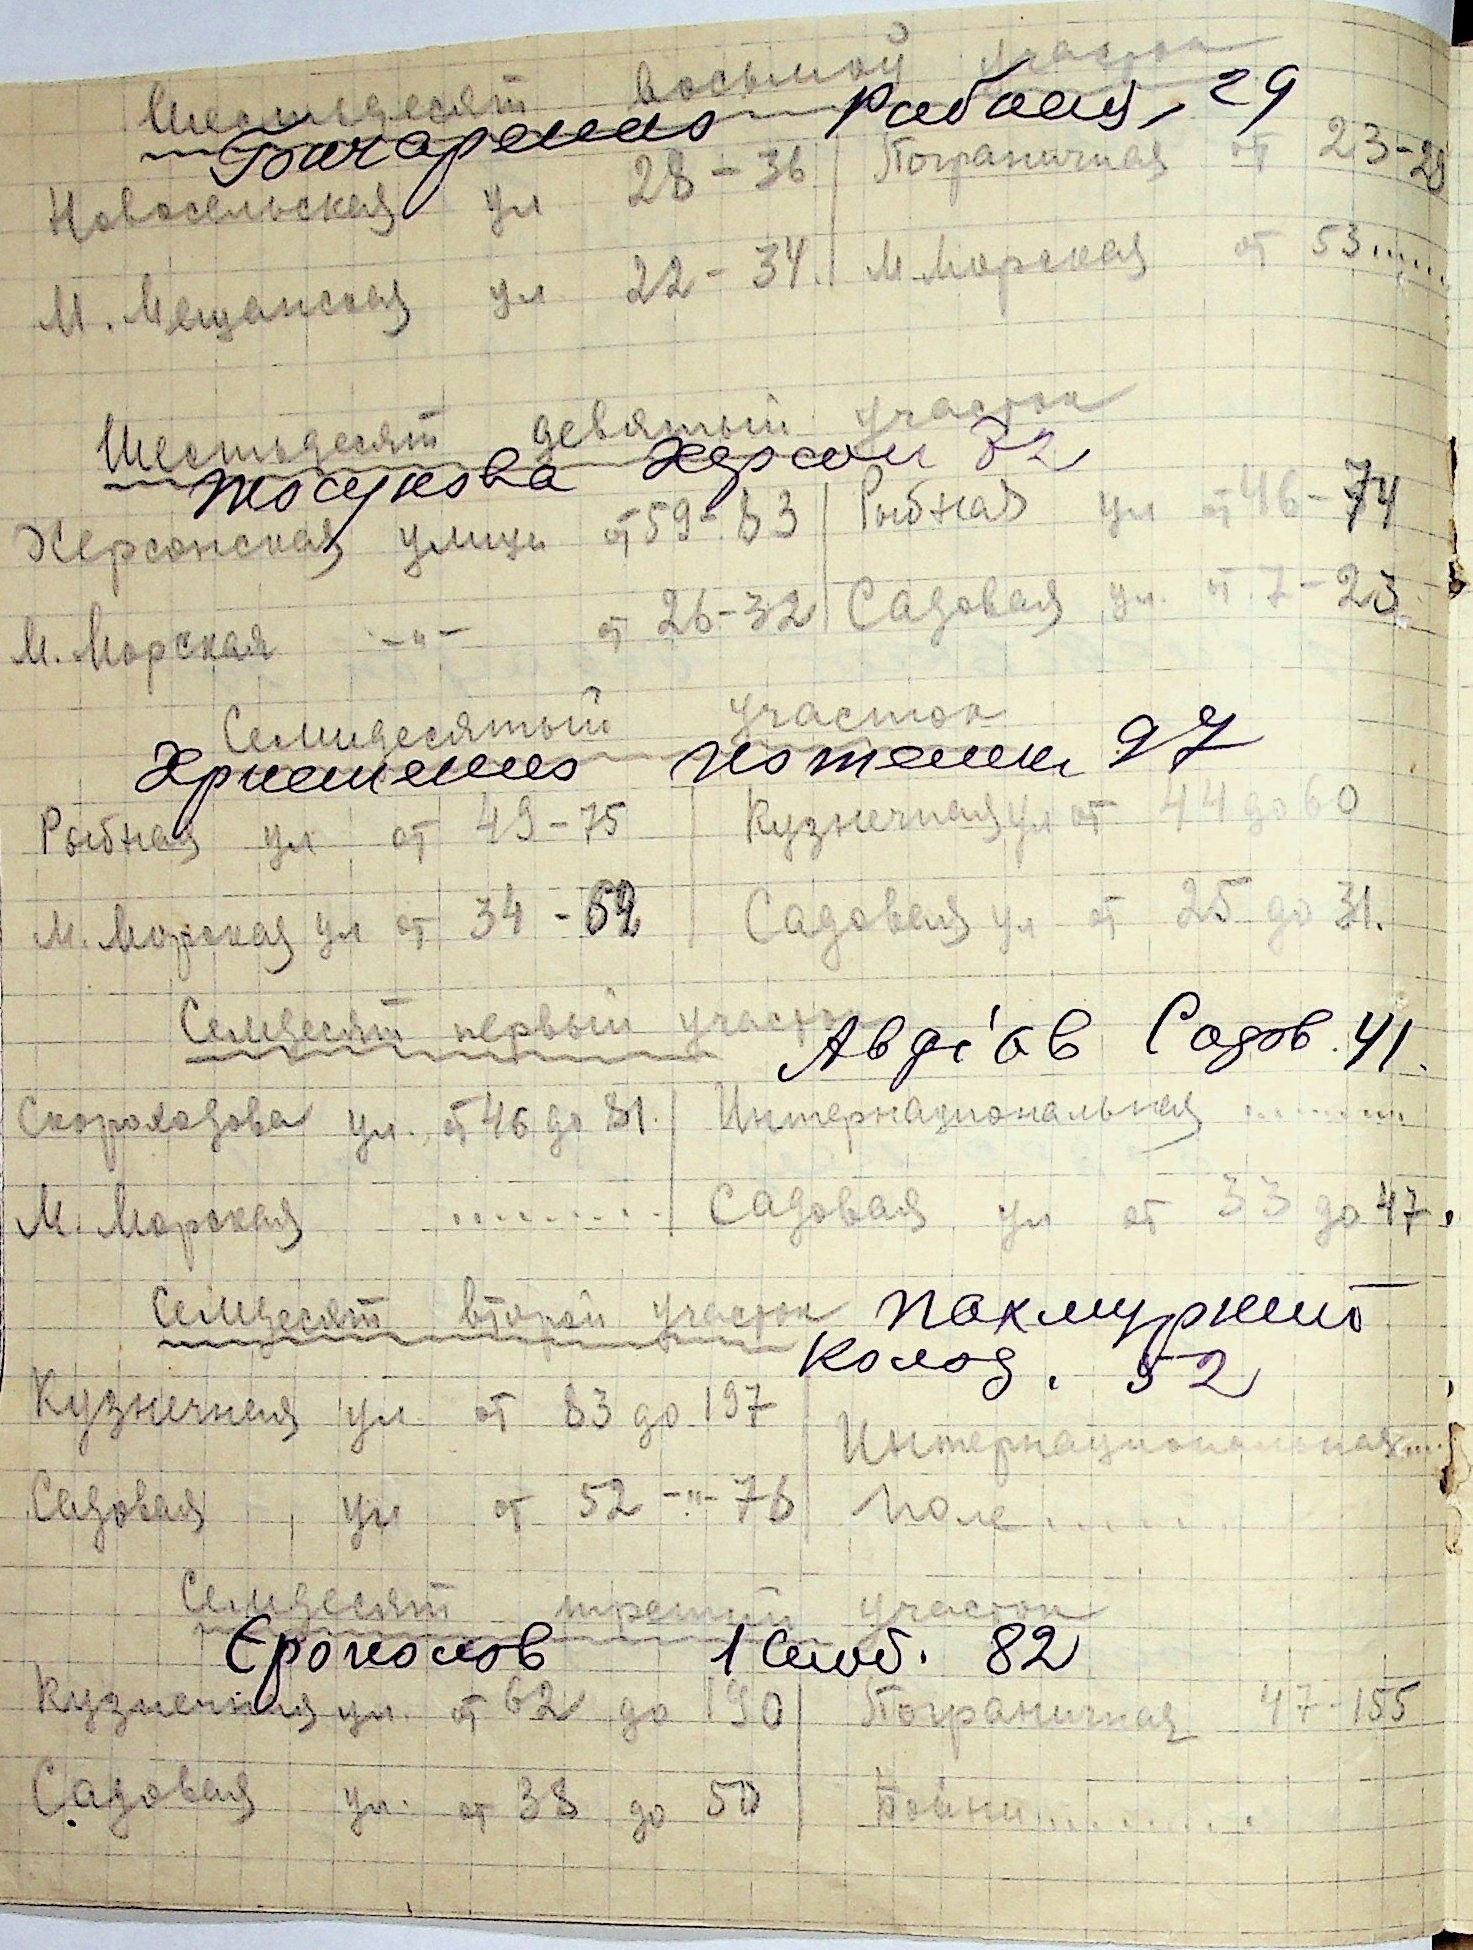 Шестьдесят восьмой участок
Гончаренко Рабоч, 29
Новосельская ул 28-36 Пограничная от 23-29
М. Мещанская ул 22-34. М. Морская от 53......
Шестьдесят девятый участок
Херсон 32
Херсонская улица от 59-83 Рыбная ул от 46-74
М. Морская -"- от 26-32 Садовая ул. от 7-23
Семидесятый участок
97
Рыбная ул от 49-75 Кузнечная ул от 44 до 60
М. Морская ул от 34-52 Садовая ул от 25 до 31.
Семдесят первый участок
Авдіев Садов. 41.
Скороходова ул. от 46 до 81. Интернациональная ........
М. Морская ......... Садовая ул от 33 до 47.
Семдесят второй участок Пахмурний
Колод. 52
Кузнечная ул. от 83 до 197 Интернациональная...
Садовая ул от 52 -"- 76 Поле......
Семдесят третий участок
1 Слоб. 82
Кузнечная ул. от 62 до 190 Пограничная 47-155
Садовая ул. от 38 до 50